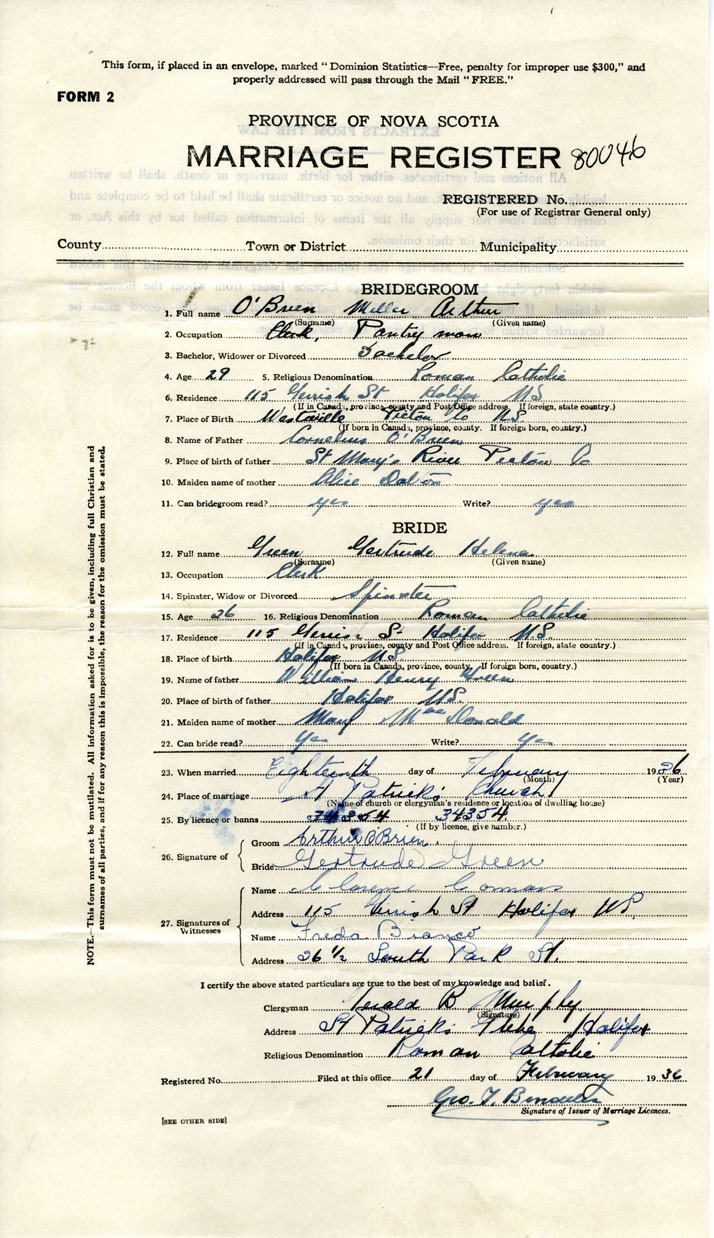 This form, if placed in an envelope, marked "Dominion Statistics—Free, penalty for improper use $300," and
properly addressed will pass through the Mail "FREE."
FORM 2
PROVINCE OF NOVA SCOTIA
MARRIAGE REGISTER 80046
REGISTERED No.
(For use of Registrar General only)
County Town or District Municipality
BRIDEGROOM
1. Full name O'Brien Arthur
(Surname) (Given name)
2. Occupation Clerk, Pantry man
3. Bachelor, Widower or Divorced Bachelor
4. Age 29 5. Religious Denomination Roman Catholic
6. Residence 115 Gerrish St Halifax NS
(If in Canada, province, county and Post Office address. If foreign, state country.)
7. Place of Birth Westville Pictou Co N.S.
(If born in Canada, province, county. If foreign born, country.)
8. Name of Father Cornelius O'Brien
9. Place of birth of father St Mary's River Pictou Co
10. Maiden name of mother Alice Dalton
11. Can bridegroom read? yes Write? yes
BRIDE
12. Full name Green Gertrude Helena
(Surname) (Given name)
13. Occupation Clerk
14. Spinster, Widow or Divorced Spinster
15. Age 26 16. Religious Denomination Roman Catholic
17. Residence 115 Gerrish St Halifax NS
(If in Canada, province, county and Post Office address. If foreign, state country.)
18. Place of birth Halifax NS
(If born in Canada, province, county. If foreign born, country.)
19. Name of father William Henry Green
20. Place of birth of father Halifax NS.
21. Maiden name of mother Mary MacDonald
22. Can bride read? Yes Write? Yes
23. When married Eighteenth day of February 1936
(Month) (Year)
24. Place of marriage St Patrick's Church
(Name of church or clergyman's residence or location of dwelling house)
25. By licence or banns 34354 34354
(If by licence, give number.)
26. Signature of
Groom Arthur O'Brien.
Bride Gertrude Green
27. Signatures of Witnesses
Name Clarence
Address 115 Gerrish St Halifax NS
Name Freda Bianco
Address 26 1/2 South Park St.
I certify the above stated particulars are true to the best of my knowledge and belief.
Clergyman Gerald B Murphy
(Signature)
Address St Patrick's Glebe Halifax
Religious Denomination Roman Catholic
Registered No. Filed at this office 21 day of February 1936
Geo. T.
Signature of Issuer of Marriage Licences.
[SEE OTHER SIDE]
NOTE.—This form must not be mutilated. All information asked for is to be given, including full Christian and
surnames of all parties, and if for any reason this is impossible, the reason for the omission must be stated.